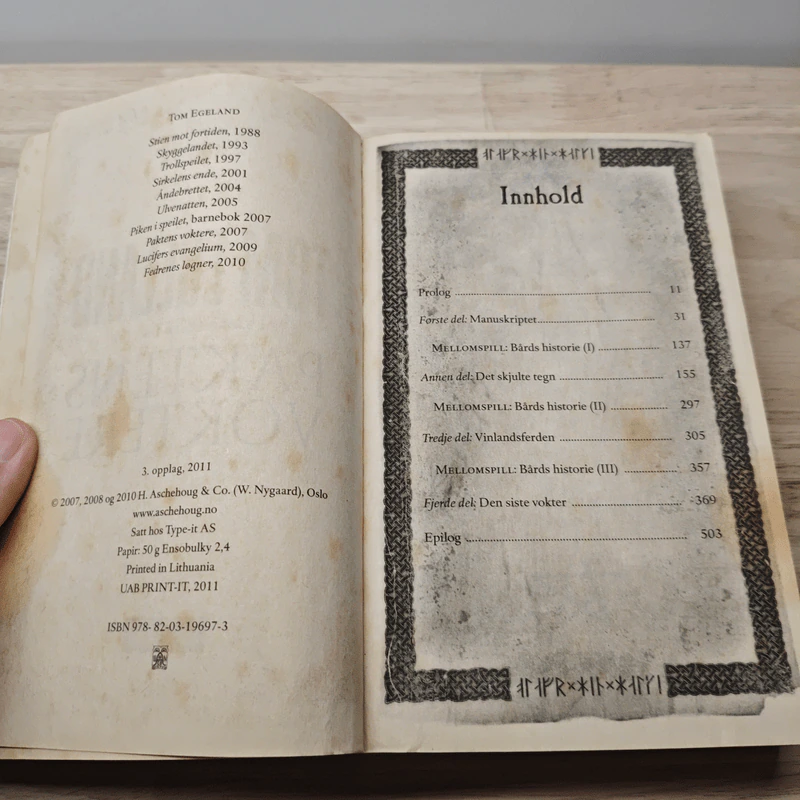 TOM EGELAND
Stien mot fortiden, 1988
Skyggelandet, 1993
Trollspeilet, 1997
Sirkelens ende, 2001
Åndebrettet, 2004
Ulvenatten, 2005
Piken i speilet, barnebok 2007
Paktens voktere, 2007
Lucifers evangelium, 2009
Fedrenes løgner, 2010
3. opplag, 2011
© 2007, 2008 og 2010 H. Aschehoug & Co. (W. Nygaard), Oslo
www.aschehoug.no
Satt hos Type-it AS
Papir: 50 g Ensobulky 2,4
Printed in Lithuania
UAB PRINT-IT, 2011
ISBN 978- 82-03-19697-3
Innhold
Prolog 11
Første del: Manuskriptet 31
MELLOMSPILL: Bårds historie (I) 137
Annen del: Det skjulte tegn 155
MELLOMSPILL: Bårds historie (II) 297
Tredje del: Vinlandsferden 305
MELLOMSPILL: Bårds historie (III) 357
Fjerde del: Den siste vokter 369
Epilog 503